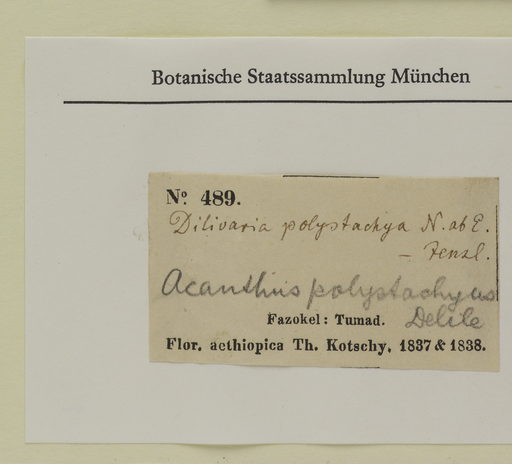 Botanische Staatssammlung München
No. 489.
Dilivaria polystachya N. ab E.
– Fenzl.
Acanthus polystachyus
Delile
Fazokel: Tumad.
Flor. aethiopica Th. Kotschy. 1837 & 1838.